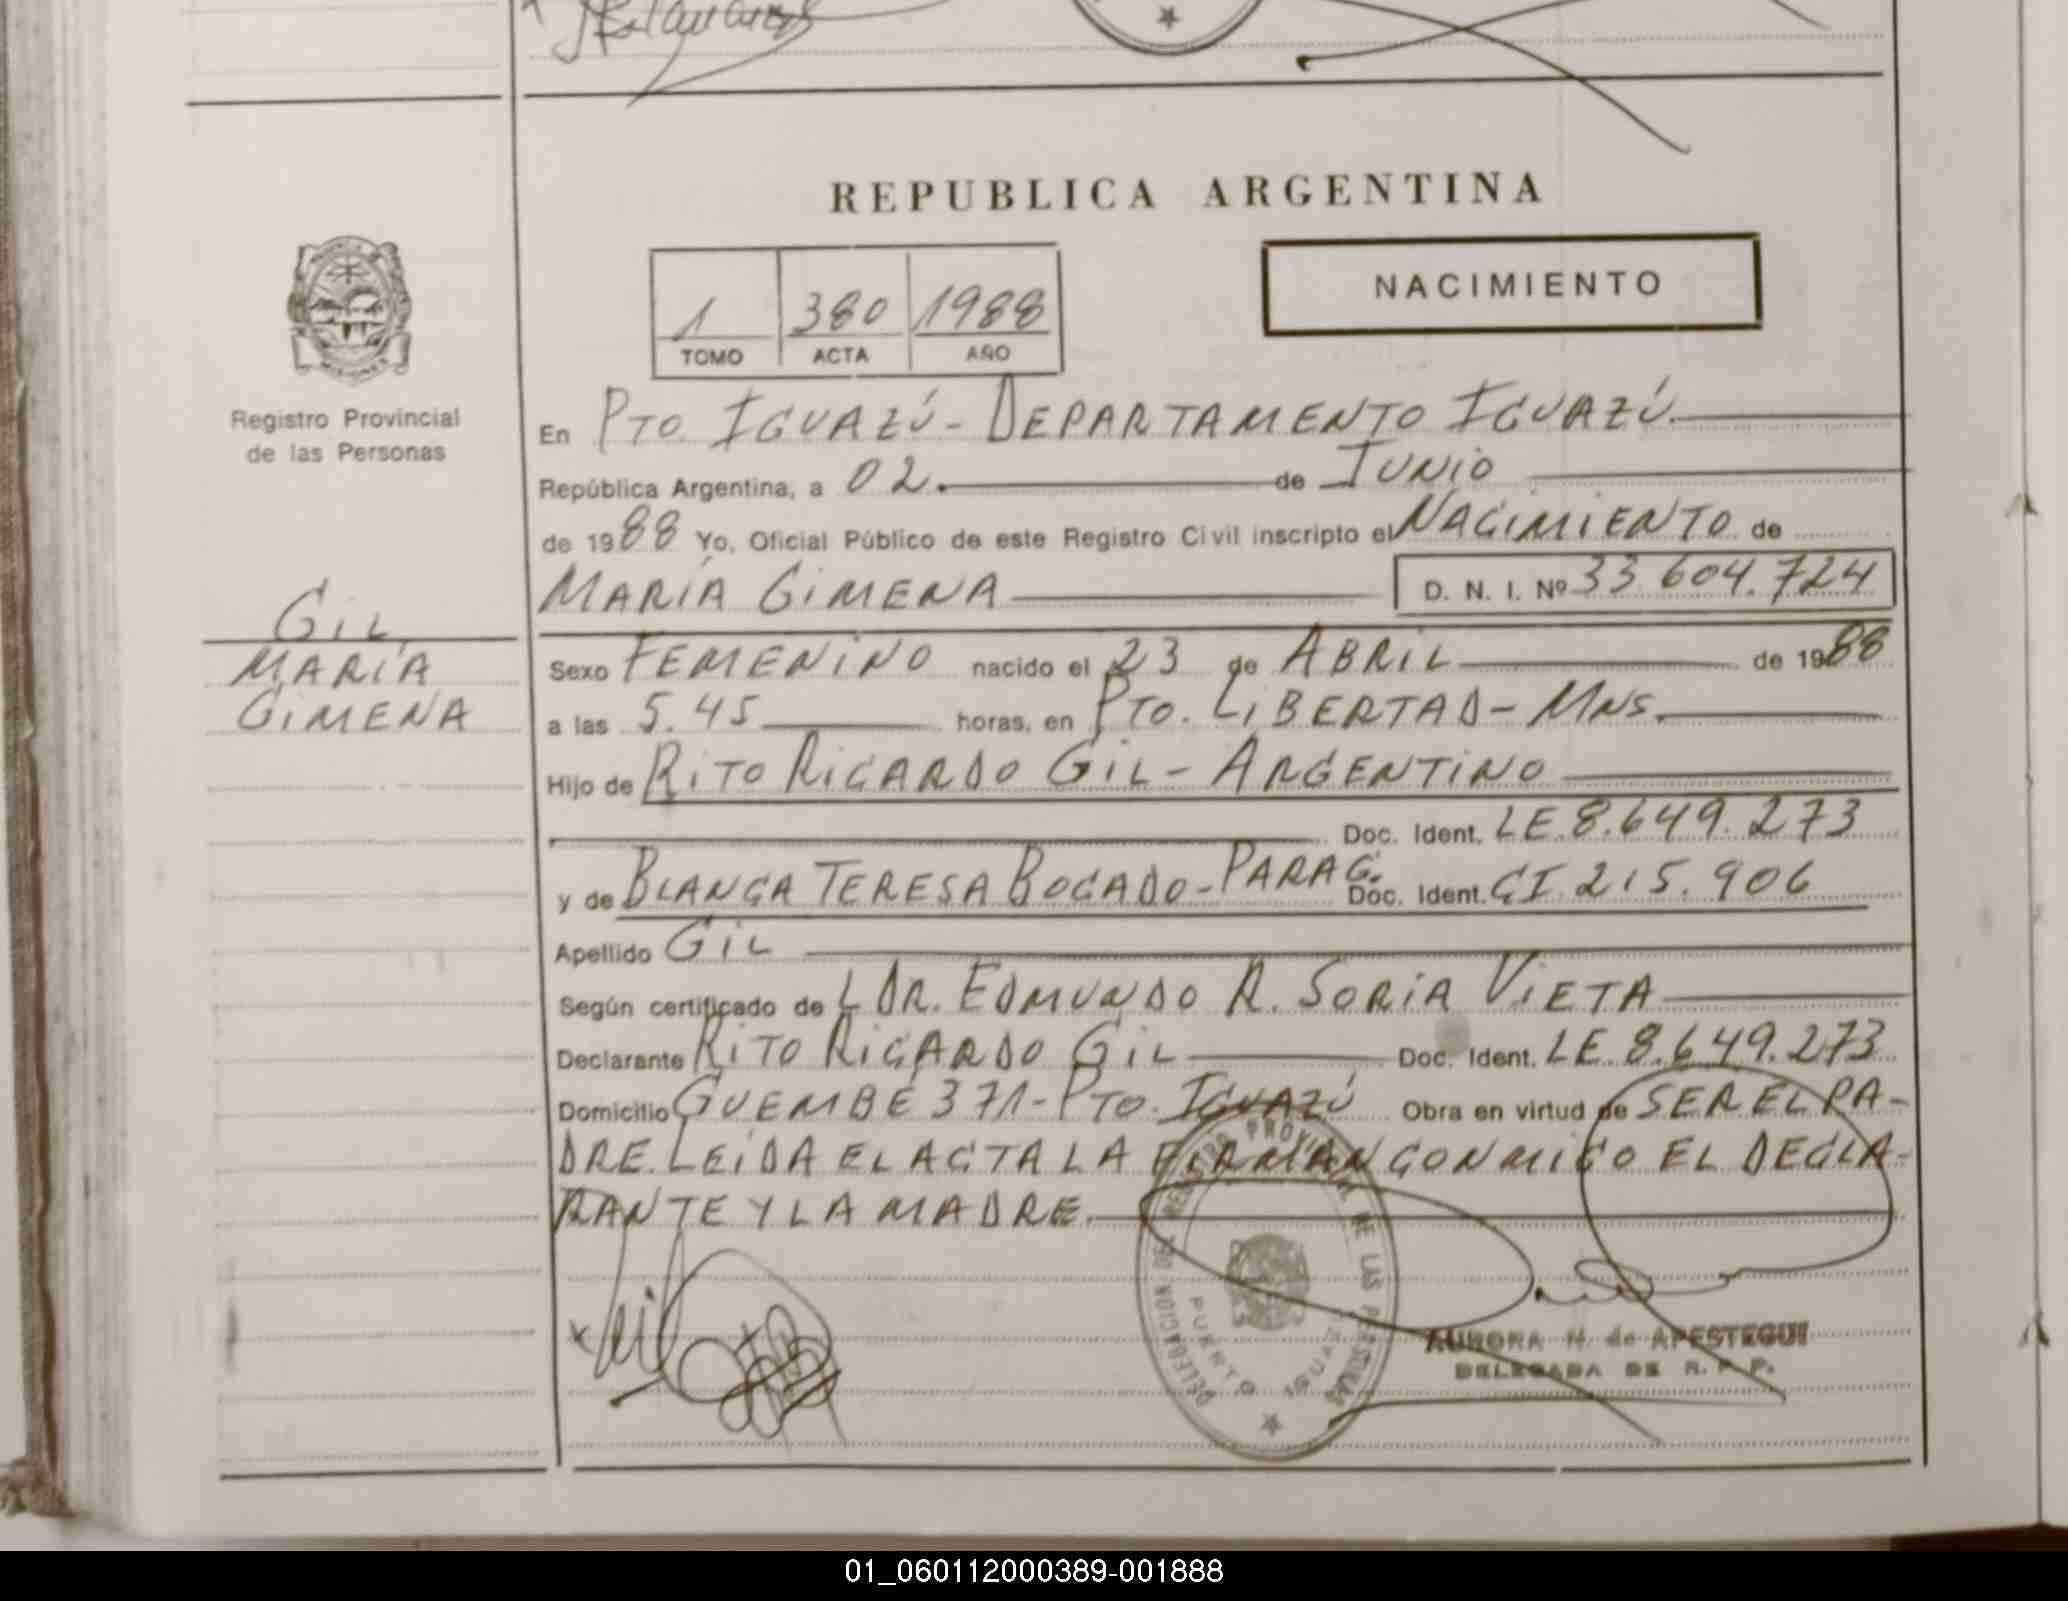 REPUBLICA ARGENTINA
NACIMIENTO
1 380 1988
TOMO ACTA AÑO
MISIONES
Registro Provincial
de las Personas
En PTO. IGUAZÚ - DEPARTAMENTO IGUAZÚ.
República Argentina, a 02. de JUNIO
de 1988 Yo, Oficial Público de este Registro Civil inscripto el NACIMIENTO de
MARÍA GIMENA D. N. I. Nº 33.604.724
GIL
MARÍA
GIMENA
Sexo FEMENINO nacido el 23 de ABRIL de 1988
a las 5.45 horas, en PTO. LIBERTAD - MNS.
Hijo de RITO RICARDO GIL - ARGENTINO
Doc. Ident. LE 8.649.273
y de BLANCA TERESA BOGADO - PARAG. Doc. Ident. CI 215.906
Apellido GIL
Según certificado de L DR. EDMUNDO R. SORIA VIETA
Declarante RITO RICARDO GIL Doc. Ident. LE 8.649.273
Domicilio GUEMBE 371 - PTO. IGUAZÚ Obra en virtud de SER EL PA-
DRE. LEIDA EL ACTA LA FIRMAN CONMIGO EL DECLA-
RANTE Y LA MADRE.
REGISTRO PROVINCIAL DE LAS PERSONAS
DELEGACION
PUERTO IGUAZU
AURORA N. de APESTEGUI
DELEGADA DE R. P. P.
01_060112000389-001888